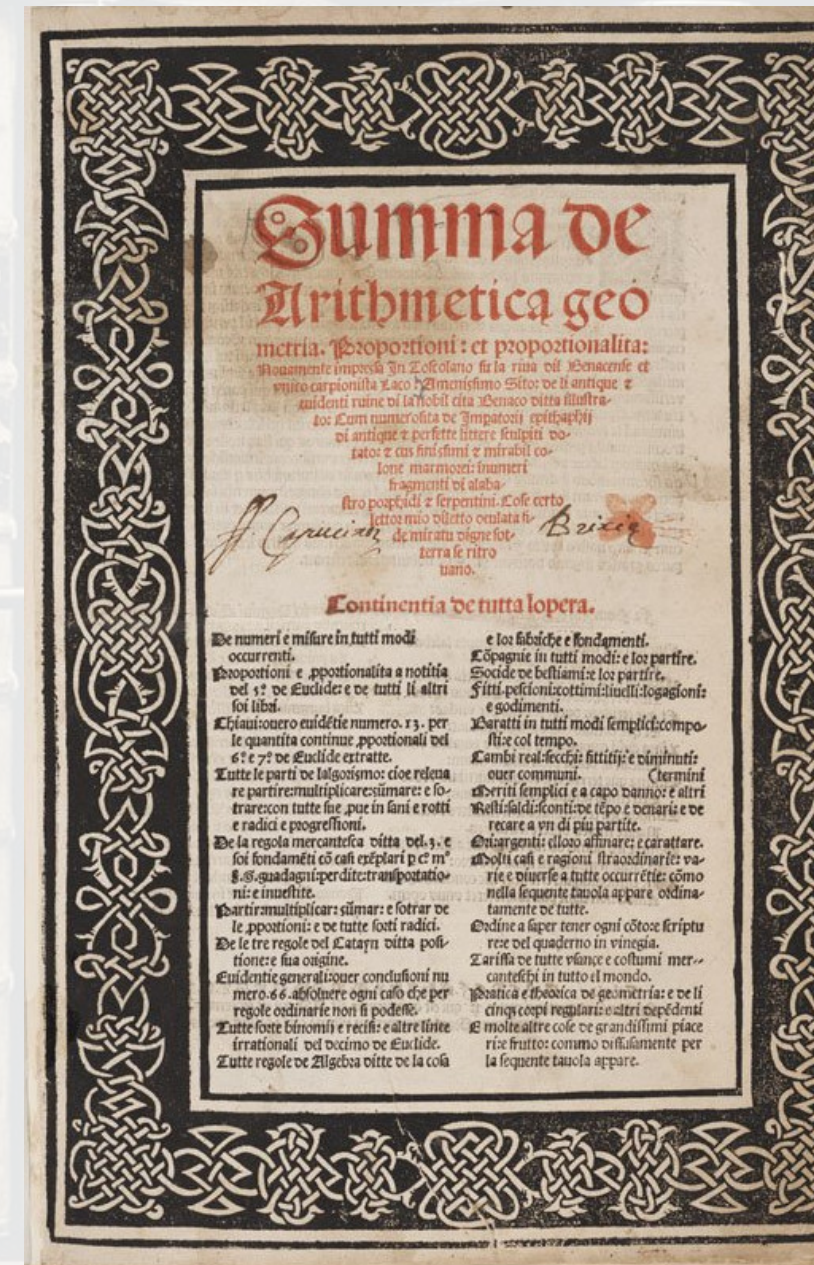 Summa de
Arithmetica geo
metria. Proportioni: et proportionalita:
Nouamente impressa In Toscolano su la riua dil Benacense et
vnico carpionista Laco: Amenissimo Sito: de li antique ⁊
euidenti ruine di la nobil cita Benaco ditta illustra-
to: Cum numerosita de Impatorij epithaphij
di antique ⁊ perfette littere sculpiti do-
tato: ⁊ cus finissimi ⁊ mirabil co-
lone marmorei: inumeri
fragmenti di alaba-
stro porphidi ⁊ serpentini. Cose certo
lettor mio diletto oculata fi-
de miratu digne sot-
terra se ritro
uano.
Brixię
Continentia de tutta lopera.
De numeri e misure in tutti modi
occurrenti.
Proportioni e ꝓportionalita a notitia
del 5º de Euclide: e de tutti li altri
soi libri.
Chiaui: ouero euidētie numero. 13. per
le quantita continue ꝓportionali del
6º e 7º de Euclide extratte.
Tutte le parti de lalgorismo: cioe releua
re. partire: multiplicare: sūmare: e so-
trare: con tutte sue ꝓue in sani e rotti
e radici e progressioni.
De la regola mercantesca ditta del. 3. e
soi fondamēti cō casi exēplari ꝑ cº mº
guadagni: perdite: transportatio-
ni: e inuestite.
Partir: multiplicar: sūmar: e sotrar de
le ꝓportioni: e de tutte sorti radici.
De le tre regole del Catayn ditta posi-
tione: e sua origine.
Euidentie generali: ouer conclusioni nu
mero. 66. absoluere ogni caso che per
regole ordinarie non si podesse.
Tutte sorte binomij e recisi: e altre linee
irrationali del decimo de Euclide.
Tutte regole de Algebra ditte de la cosa
e lor fabriche e fondamenti.
Cōpagnie in tutti modi: e lor partire.
Socide de bestiami: e lor partire.
Fitti: pescioni: cottimi: liuelli: logagioni:
e godimenti.
Baratti in tutti modi semplici: compo-
sti: e col tempo.
Cambi reali: secchi: fittitij: e diminuti:
ouer communi. (termini
Meriti semplici e a capo danno: e altri
Resti: saldi: sconti: de tēpo e denari: e de
recare a vn di piu partite.
Ori: argenti: e lloro affinare: e carattare.
Molti casi e ragioni straordinarie: va-
rie e diuerse a tutte occurrētie: cōmo
nella sequente tauola appare ordina-
tamente de tutte.
Ordine a saper tener ogni cōto: e scriptu
re: e del quaderno in vinegia.
Tariffa de tutte vsançe e costumi mer-
canteschi in tutto el mondo.
Pratica e theorica de geometria: e de li
cinqȝ corpi regulari: e altri depēdenti
E molte altre cose de grandissimi piace
ri: e frutto: commo diffusamente per
la sequente tauola appare.